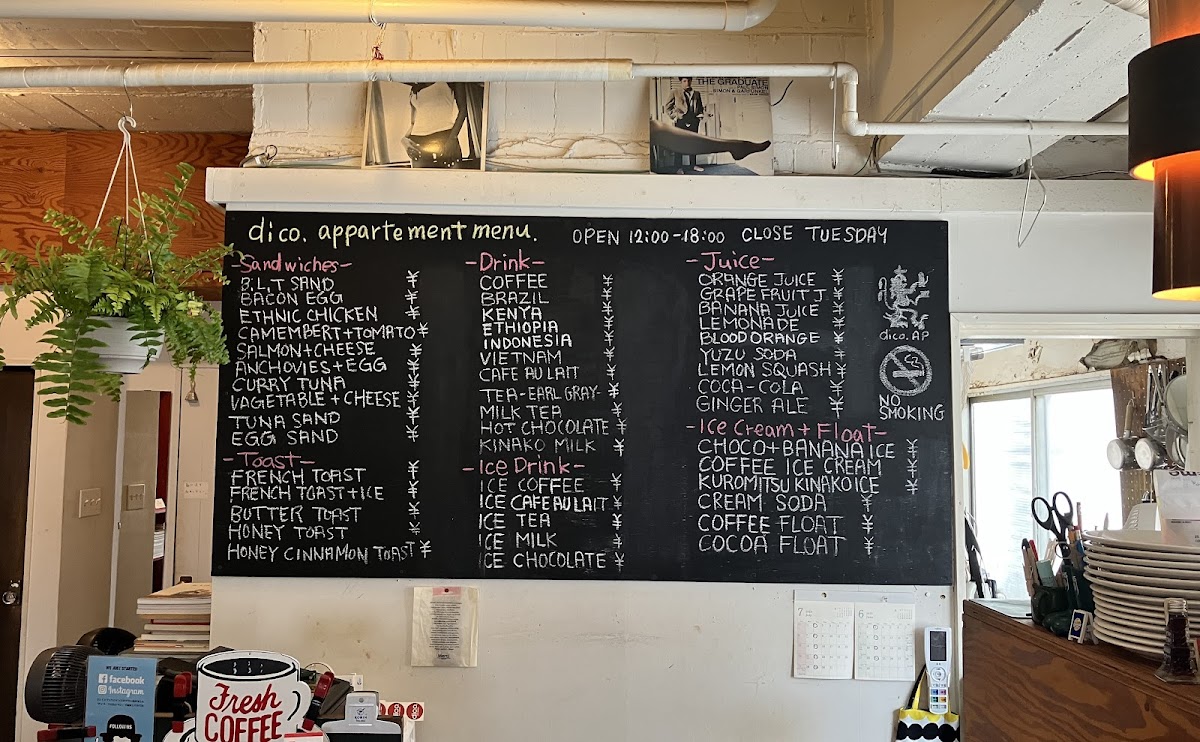 THE GRADUATE
PAUL SIMON
SIMON & GARFUNKEL
dico. appartement menu.
OPEN 12:00-18:00 CLOSE TUESDAY
-Sandwiches-
B.L.T SAND ¥
BACON EGG ¥
ETHNIC CHICKEN ¥
CAMEMBERT+TOMATO ¥
SALMON+CHEESE ¥
ANCHOVIES+EGG ¥
CURRY TUNA ¥
VAGETABLE+CHEESE ¥
TUNA SAND ¥
EGG SAND ¥
-Toast-
FRENCH TOAST ¥
FRENCH TOAST+ICE ¥
BUTTER TOAST ¥
HONEY TOAST ¥
HONEY CINNAMON TOAST ¥
-Drink-
COFFEE ¥
BRAZIL ¥
KENYA ¥
ETHIOPIA ¥
INDONESIA ¥
VIETNAM ¥
CAFE AU LAIT ¥
TEA-EARL GRAY- ¥
MILK TEA ¥
HOT CHOCOLATE ¥
KINAKO MILK ¥
-Ice Drink-
ICE COFFEE ¥
ICE CAFE AU LAIT ¥
ICE TEA ¥
ICE MILK ¥
ICE CHOCOLATE ¥
-Juice-
ORANGE JUICE ¥
GRAPE FRUIT J. ¥
BANANA JUICE ¥
LEMONADE ¥
BLOOD ORANGE ¥
YUZU SODA ¥
LEMON SQUASH ¥
COCA-COLA ¥
GINGER ALE ¥
-Ice Cream + Float-
CHOCO+BANANA ICE ¥
COFFEE ICE CREAM ¥
KUROMITSU KINAKO ICE ¥
CREAM SODA ¥
COFFEE FLOAT ¥
COCOA FLOAT ¥
dico. AP
NO
SMOKING
7
6
facebook
Instagram
FOLLOW ME
Fresh
COFFEE